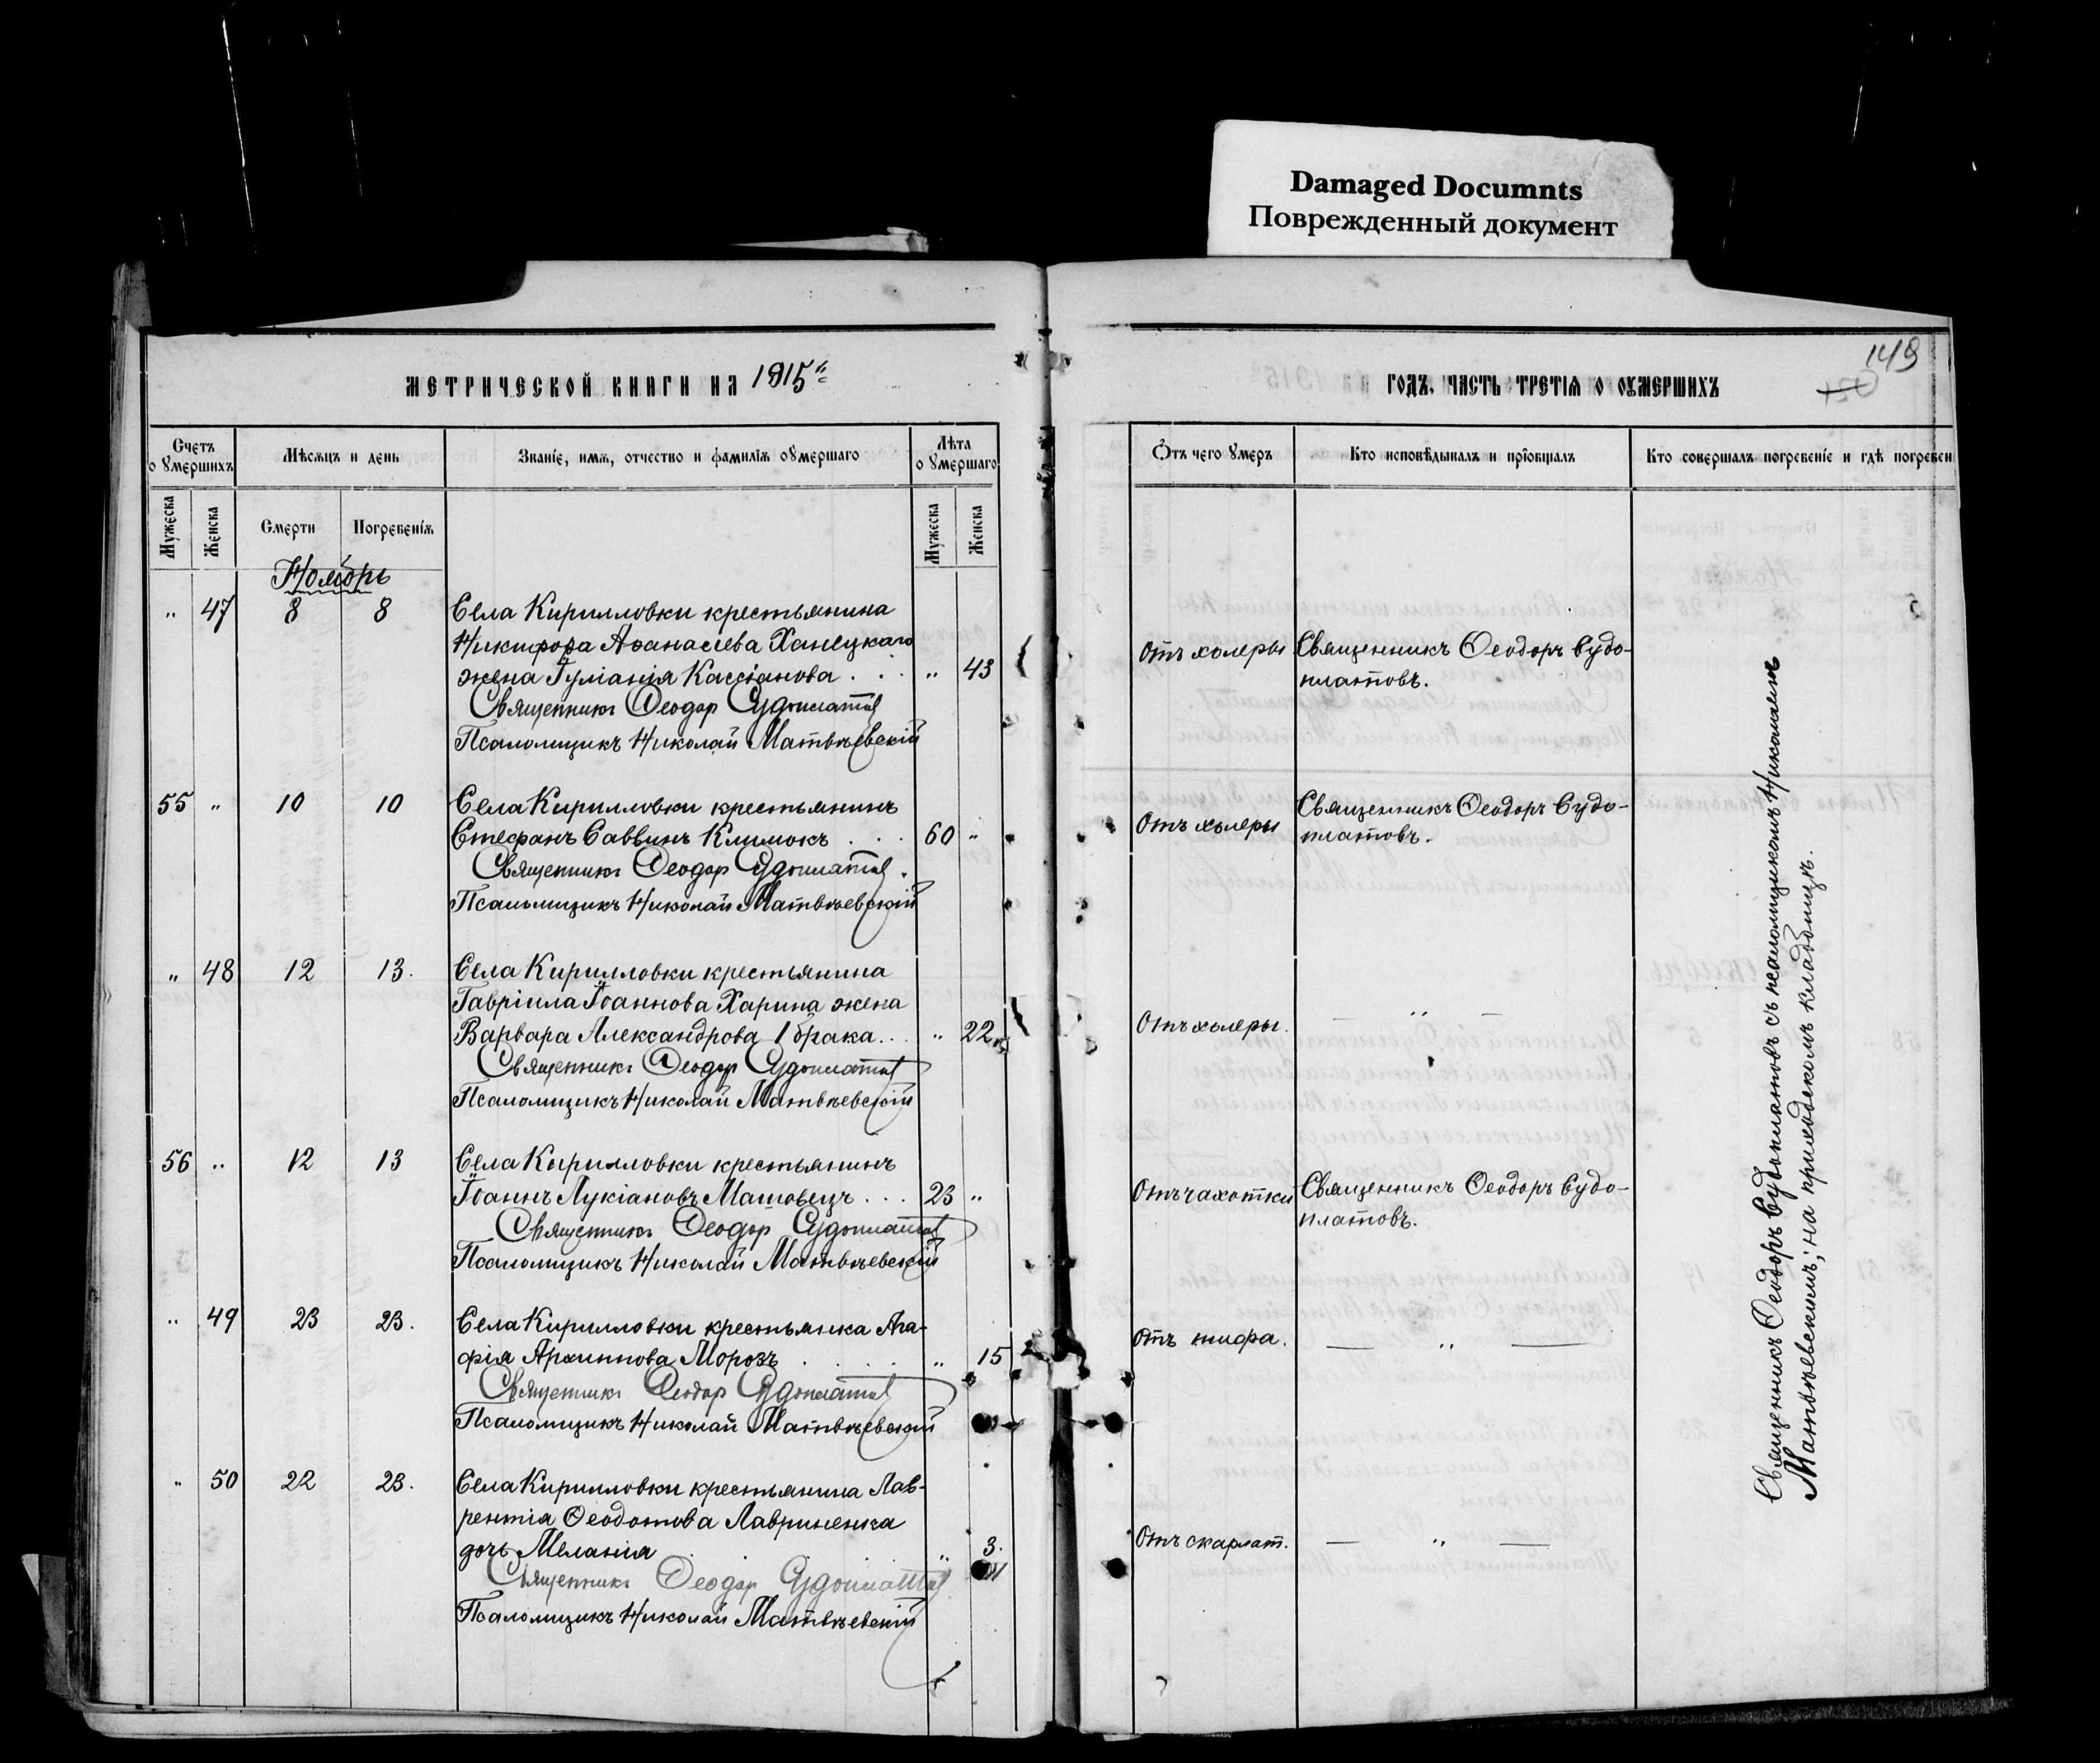 Damaged Documnts
Поврежденный документ
149
МЕТРИЧЕСКОЙ КНИГИ НА 1915
ГОДЪ. ЧАСТЬ ТРЕТІЯ О ОУМЕРШИХЪ
Счетъ о умершихъ
Мѣсяцъ и день
Званіе, имя, отчество и фамилія оумершаго
Лѣта о умершаго
Отъ чего умеръ
Кто исповѣдывалъ и пріобщалъ
Кто совершалъ погребеніе и гдѣ погребен
Мужеска
Женска
Смерти
Погребенія
Мужеска
Женска
Ноябрь
„ 47 8 8 Села Кирилловки крестьянина
Никифора Аѳанасіева Ханецкаго
жена Іуліанія Кассіанова . . . „ 43 Отъ холеры Священникъ Ѳеодоръ Судо-
платовъ.
Священникъ Ѳеодор Судоплатов
Псаломщикъ Николай Матвѣевскій
55 „ 10 10 Села Кирилловки крестьянинъ
Стефанъ Саввинъ Климокъ . . . 60 „ Отъ холеры Священникъ Ѳеодоръ Судо-
платовъ.
Священникъ Ѳеодор Судоплатов
Псаломщикъ Николай Матвѣевскій
„ 48 12 13. Села Кирилловки крестьянина
Гавріила Іоаннова Харина жена
Варвара Александрова 1 брака . . „ 22 Отъ холеры. — „ —
Священникъ Ѳеодор Судоплатов
Псаломщикъ Николай Матвѣевскій
56 „ 12 13 Села Кирилловки крестьянинъ
Іоаннъ Лукіановъ Матовецъ . . . 23 „ Отъ чахотки Священникъ Ѳеодоръ Судо-
платовъ.
Священникъ Ѳеодор Судоплатов
Псаломщикъ Николай Матвѣевскій
„ 49 23 23. Села Кирилловки крестьянка Ага-
фія Архиппова Морозъ . . . . „ 15 Отъ тифа. — „ —
Священникъ Ѳеодор Судоплатов
Псаломщикъ Николай Матвѣевскій
„ 50 22 23. Села Кирилловки крестьянина Лав-
рентія Ѳеодотова Лавриненка
дочь Меланія „ 3. Отъ скарлат. — „ —
Священникъ Ѳеодор Судоплатов
Псаломщикъ Николай Матвѣевскій
Священникъ Ѳеодоръ Судоплатовъ съ псаломщикомъ Николаемъ
Матвѣевскимъ; на приходскомъ кладбищѣ.